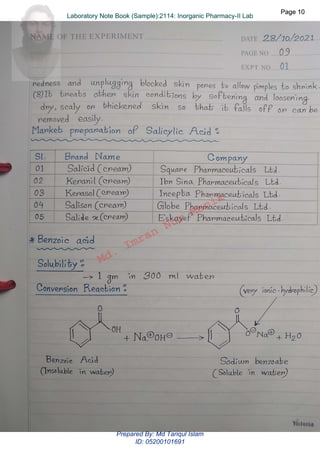 Laboratory Note Book (Sample):2114: Inorganic Pharmacy-II Lab
Page 10
NAME OF THE EXPERIMENT
DATE 28/10/2021
PAGE NO. 09
EXPT. NO. 01
redness and unplugging blocked skin pores to allow pimples to shrink.
(8)It treats other skin conditions by softening and loosening
dry, scaly or thickened skin so that it falls off or can be
removed easily.
Market preparation of Salicylic Acid :
SL. Brand Name Company
01 Salicid (cream) Square Pharmaceuticals Ltd
02 Keranil (cream) Ibn Sina Pharmaceuticals Ltd
03 Kerasol (cream) Incepta Pharmaceuticals Ltd.
04 Salison (cream) Globe Pharmaceuticals Ltd.
05 Salide (cream) Eskayef Pharmaceuticals Ltd
Md. Imran Nur
* Benzoic acid
Solubility :
→ 1 gm in 300 ml water
Conversion Reaction :
(very ionic-hydrophilic)
O O
OH + Na⊕OH⊖ → O⊖Na⊕ + H2O
Benzoic Acid Sodium benzoate
(Insoluble in water) (Soluble in water)
Victoria
Prepared By: Md Tariqul Islam
ID: 05200101691